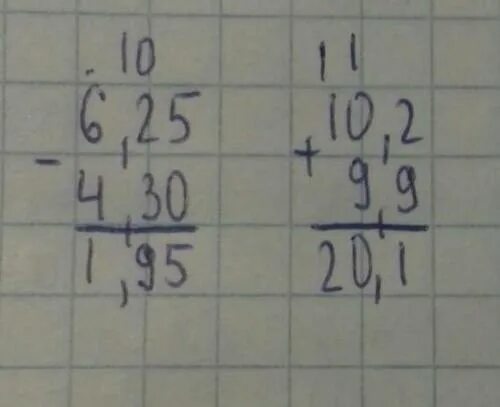 . 10
6,25
-
4,30
1,95
11
10,2
+
9,9
20,1